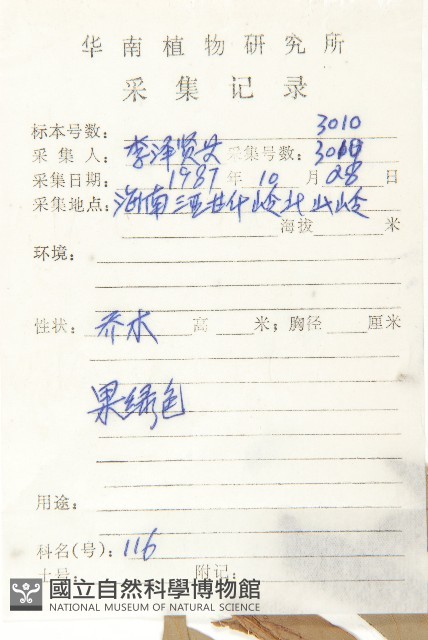 华南植物研究所
采集记录
标本号数:
3010
采集人: 李泽贤 采集号数: 30
采集日期: 1987 年 10 月 28 日
采集地点: 海南 什岭北山岭
海拔 米
环境:
性状: 乔木 高 米; 胸径 厘米
果绿色
用途:
科名(号): 116
土号: 附记:
國立自然科學博物館
NATIONAL MUSEUM OF NATURAL SCIENCE